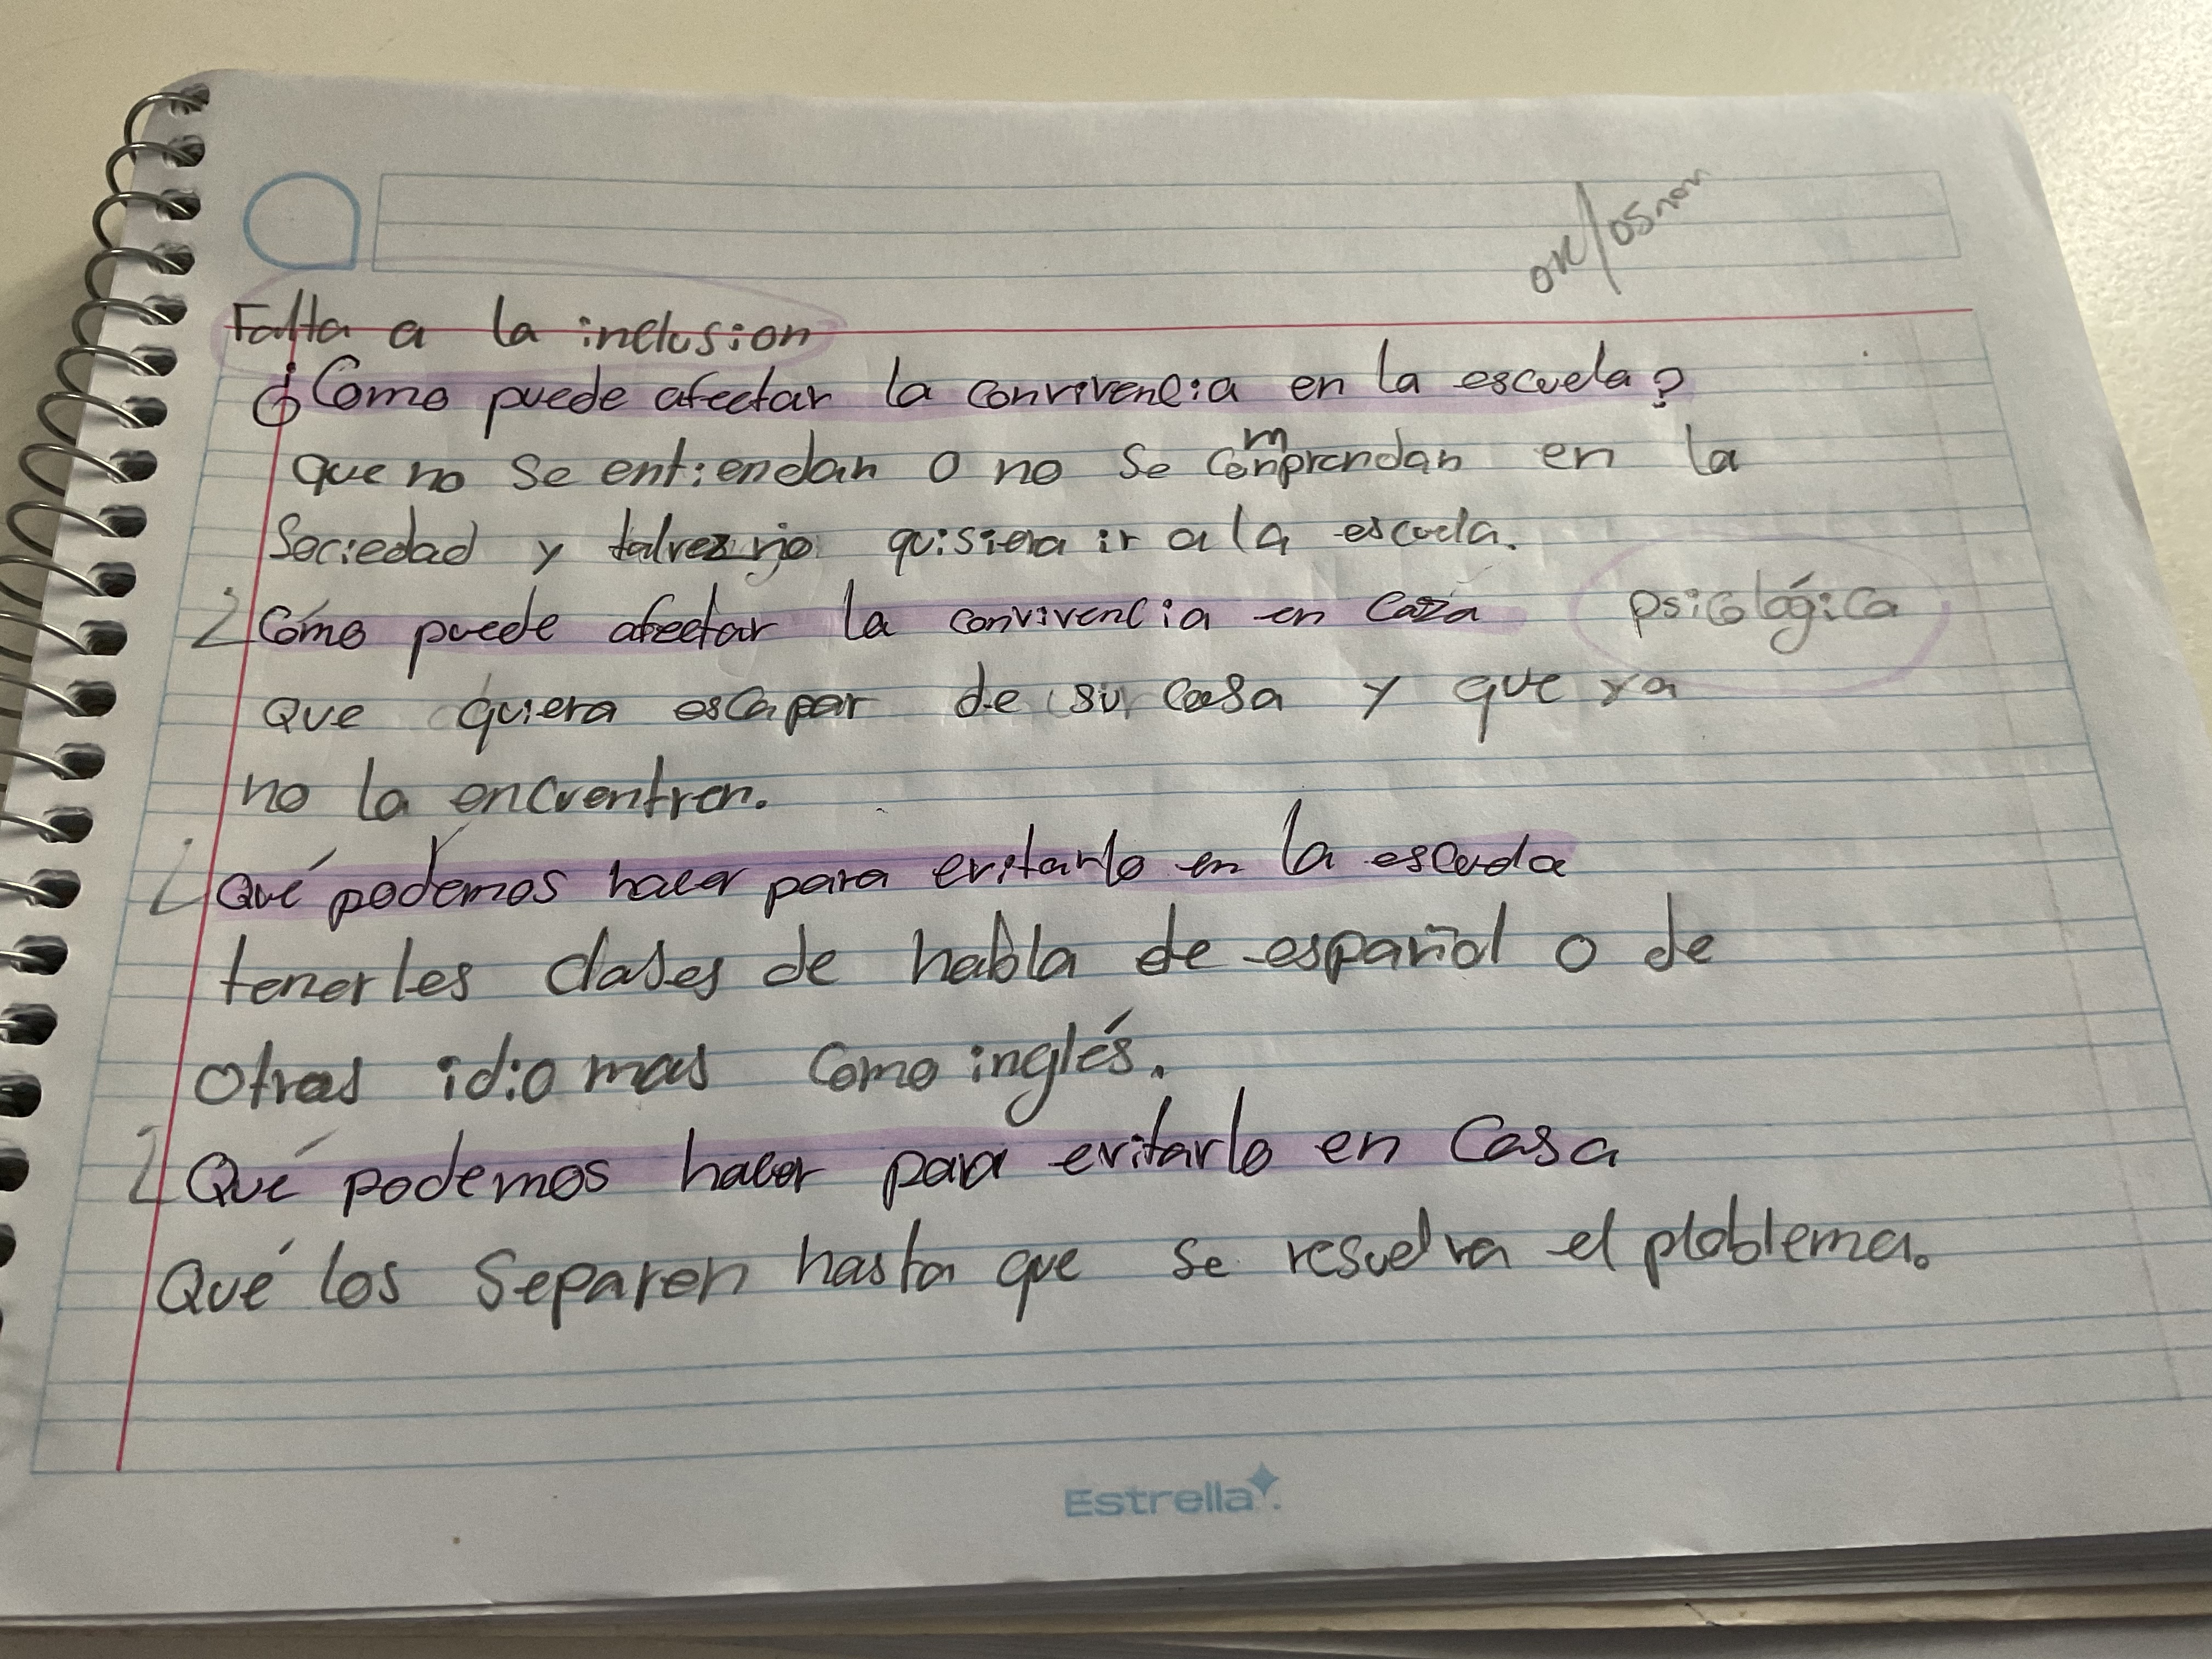 Falta a la inclusion
¿Como puede afectar la convivencia en la escuela?
que no se entiendan o no se comprendan en la
Sociedad y talvez no quisiera ir a la escuela.
¿Cómo puede afectar la convivencia en caza psicológica
Que quiera escapar de su casa y que ya
no la encuentren.
¿Qué podemos hacer para evitarlo en la escuela
tenerles clases de habla de español o de
otras idiomas como inglés.
¿Qué podemos hacer para evitarlo en Casa
Qué los Separen hasta que se resuelva el ploblema.
Estrella